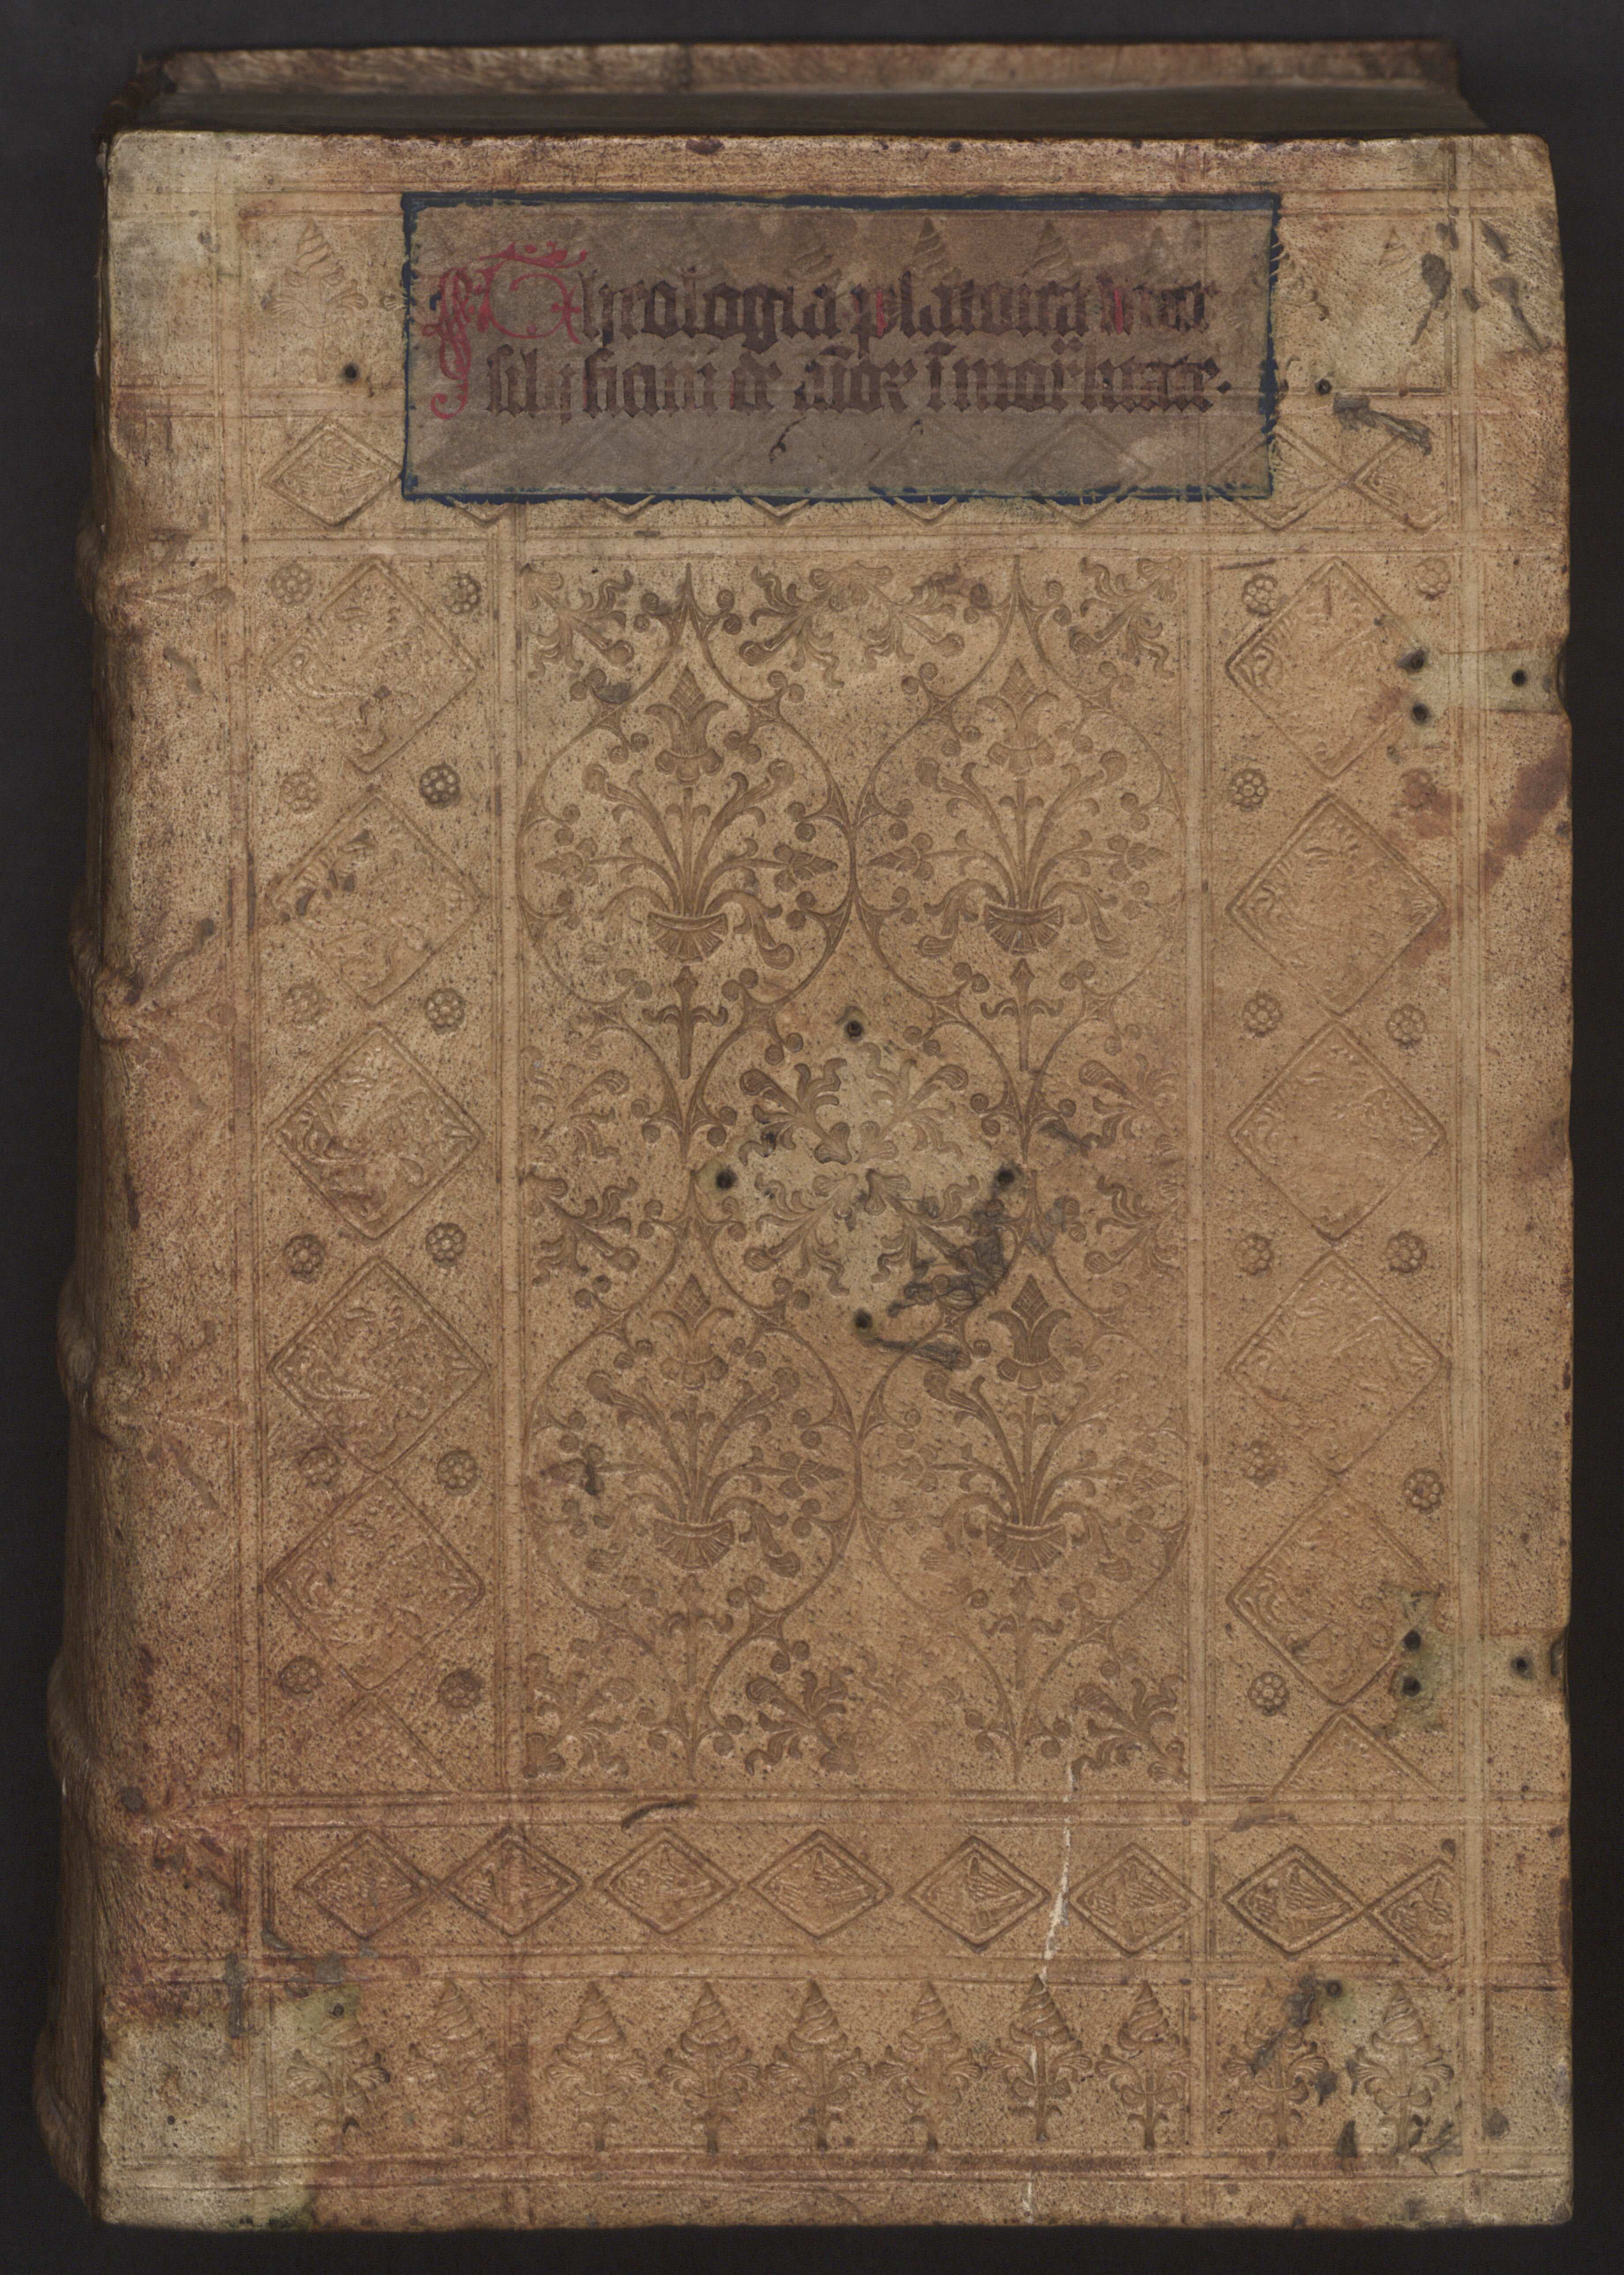 Theologia platonica mar
silij ficini de aīoꝝ īmortalitate.